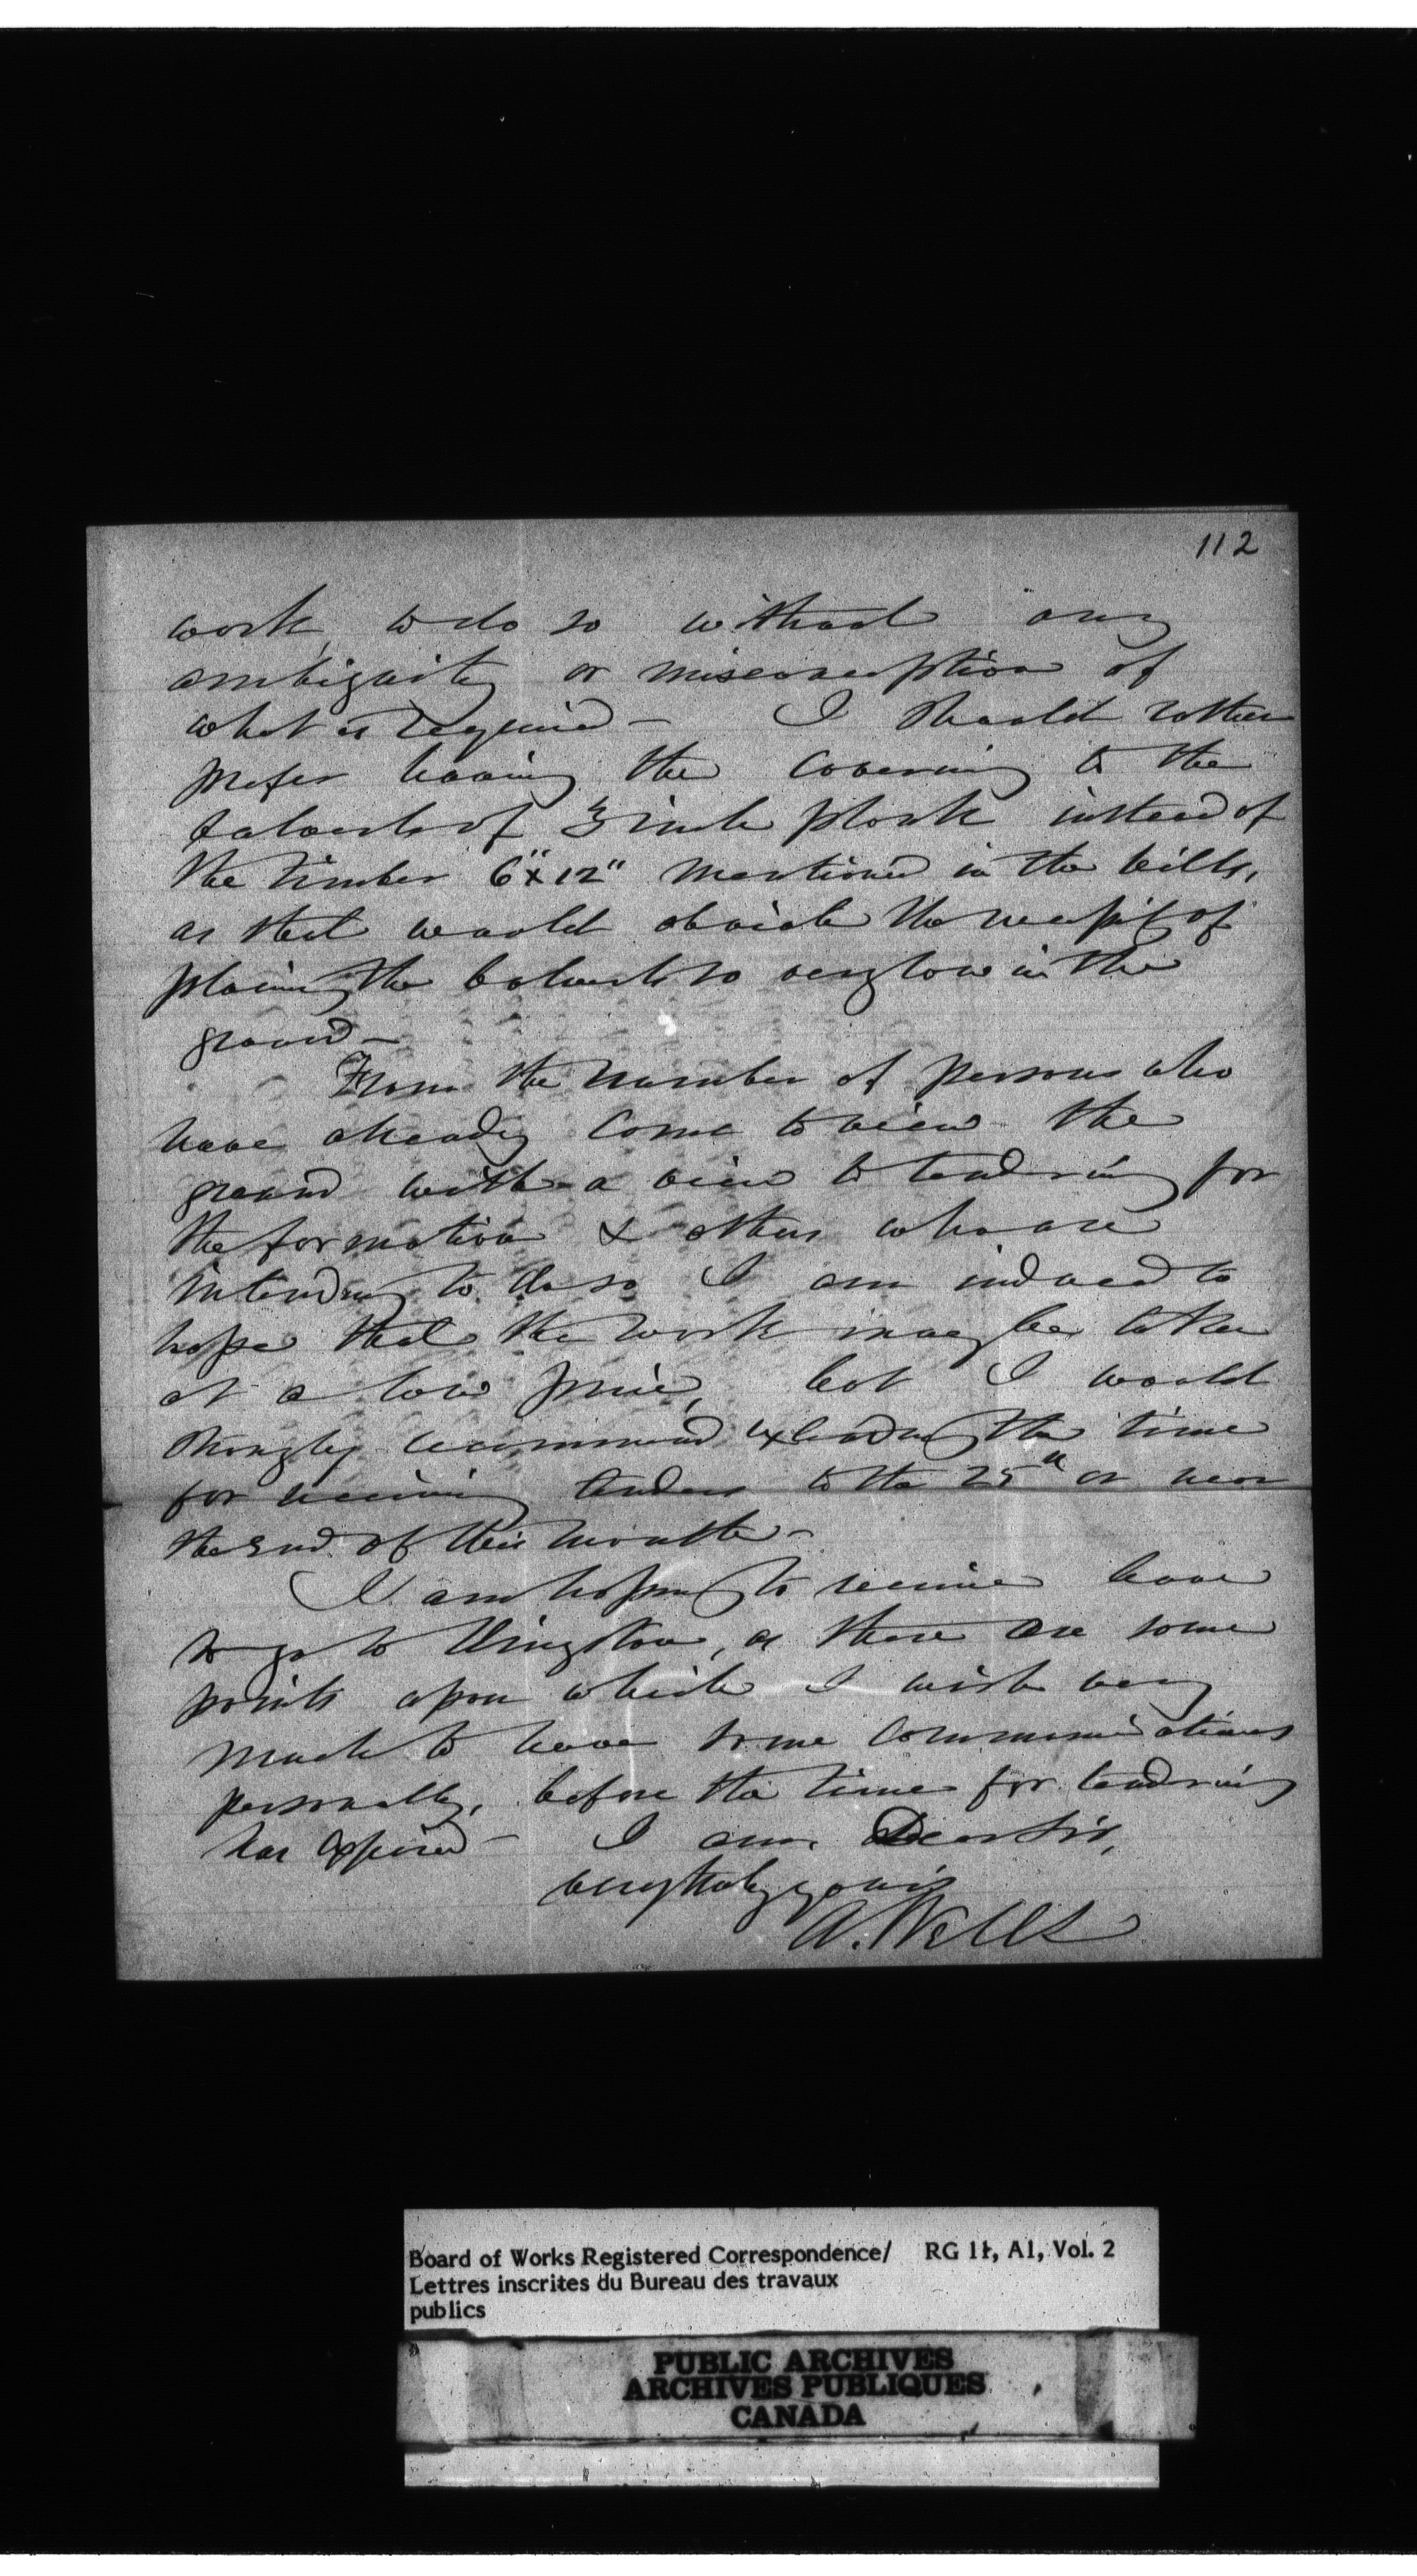 112
work, to do so without any
ambiguity or misconception of
what is required – I should rather
prefer having the covering to the
culverts of 3 inch plank instead of
the timber 6"x12" mentioned in the bills,
as that would obviate the of
placing the culverts so very low in the
ground –
From the number of persons who
have already come to view the
ground with a view to tendering for
the formation & others who are
intending to do so I am induced to
hope that the work may be taken
at a low price, but I would
strongly recommend extending the time
for receiving tenders to the 25th or near
the end of this month –
I am hoping to receive leave
to go to Kingston, as there are some
points upon which I wish very
much to have some communications
personally, before the time for tendring
has expired – I am, Dear Sir,
very truly yours
A. Wells
Board of Works Registered Correspondence/ RG 11, A1, Vol. 2
Lettres inscrites du Bureau des travaux
publics
PUBLIC ARCHIVES
ARCHIVES PUBLIQUES
CANADA